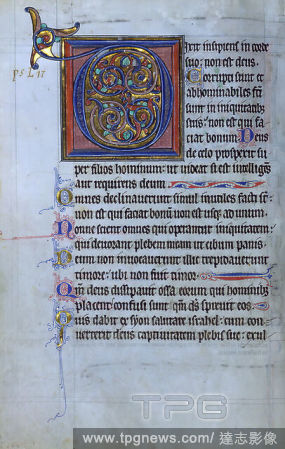 ps Lii
Dixit insipiens in corde
suo: non est deus.
Corrupti sunt et
abhominabiles facti
sunt in iniquitatib;
suis: non est qui fa
ciat bonum. Deus
de celo prospexit su
per filios hominum: ut uideat si est intelligens
aut requirens deum.
Omnes declinauerunt simul inutiles facti st:
non est qui faciat bonum non est usq; ad unum.
Nonne scient omnes qui operantur iniquitatem:
qui deuorant plebem meam ut cibum panis.
Deum non inuocauerunt illic trepidauerunt
timore: ubi non fuit timor.
Qm deus dissipauit ossa eorum qui hominib;
placent confusi sunt qm ds spreuit eos.
Quis dabit ex syon salutare israhel: cum con
uerterit deus captiuitatem plebis sue: exul
TPG
www.tpgnews.com/達志影像